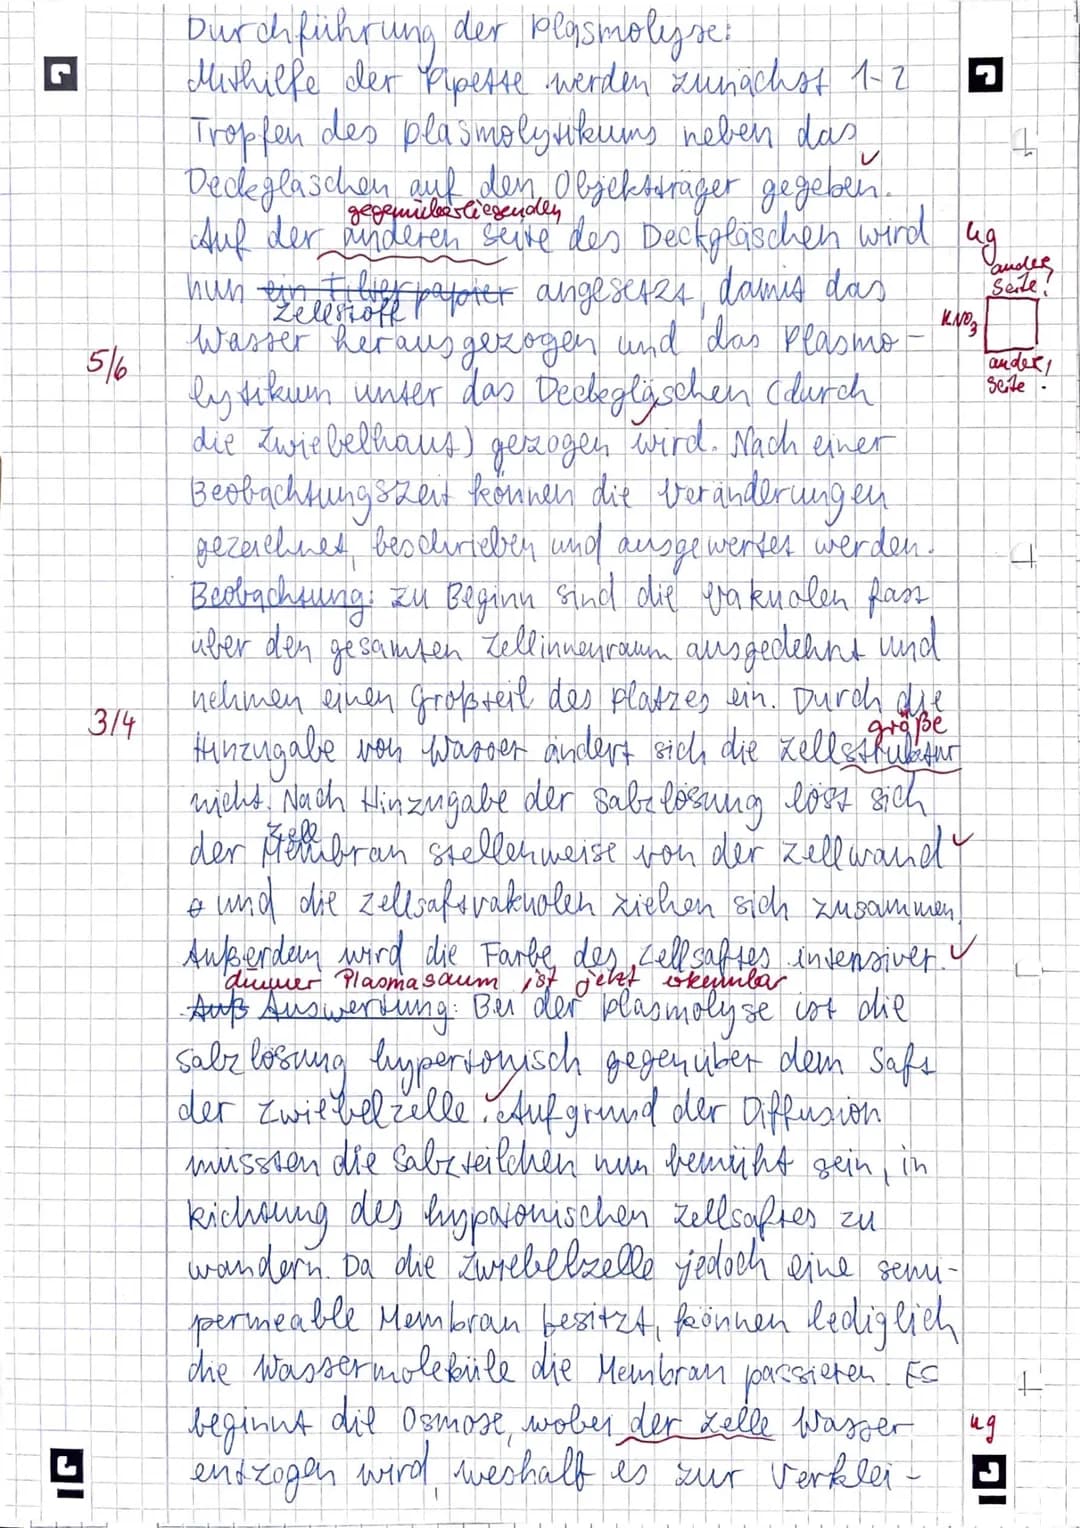 Durchführung der Plasmolyse:
Mithilfe der Pipette werden zunächst 1-2
Tropfen des Plasmolytikums neben das
Deckgläschen auf den Objektträger gegeben. ✓
gegenüberliegenden
Auf der anderen Seite des Deckgläschen wird
ug
andere Seite?
nun ein Filterpapier angesetzt, damit das
Zellstoff
KNO3
Wasser herausgezogen und das Plasmo-
5/6
andere Seite.
lytikum unter das Deckgläschen (durch
die Zwiebelhaut) gezogen wird. Nach einer
Beobachtungszeit können die Veränderungen
gezeichnet, beschrieben und ausgewertet werden.
Beobachtung: Zu Beginn sind die Vakuolen fast
über den gesamten Zellinnenraum ausgedehnt und
nehmen einen Großteil des Platzes ein. Durch die
3/4
größe
Hinzugabe von Wasser ändert sich die Zellstruktur
nicht. Nach Hinzugabe der Salzlösung löst sich
Zell
der Membran stellenweise von der Zellwand ✓
und die Zellsaftvakuolen ziehen sich zusammen.
Außerdem wird die Farbe des Zellsaftes intensiver. ✓
dünner Plasmasaum ist jetzt erkennbar
Auß Auswertung: Bei der Plasmolyse ist die
Salzlösung hypertonisch gegenüber dem Saft
der Zwiebelzelle. ✓ Aufgrund der Diffusion
müssten die Salzteilchen nun bemüht sein, in
Richtung des hypotonischen Zellsaftes zu
wandern. Da die Zwiebelzelle jedoch eine semi-
permeable Membran besitzt, können lediglich
die Wassermoleküle die Membran passieren. Es
beginnt die Osmose, wobei der Zelle Wasser
ug
entzogen wird, weshalb es zur Verklei-